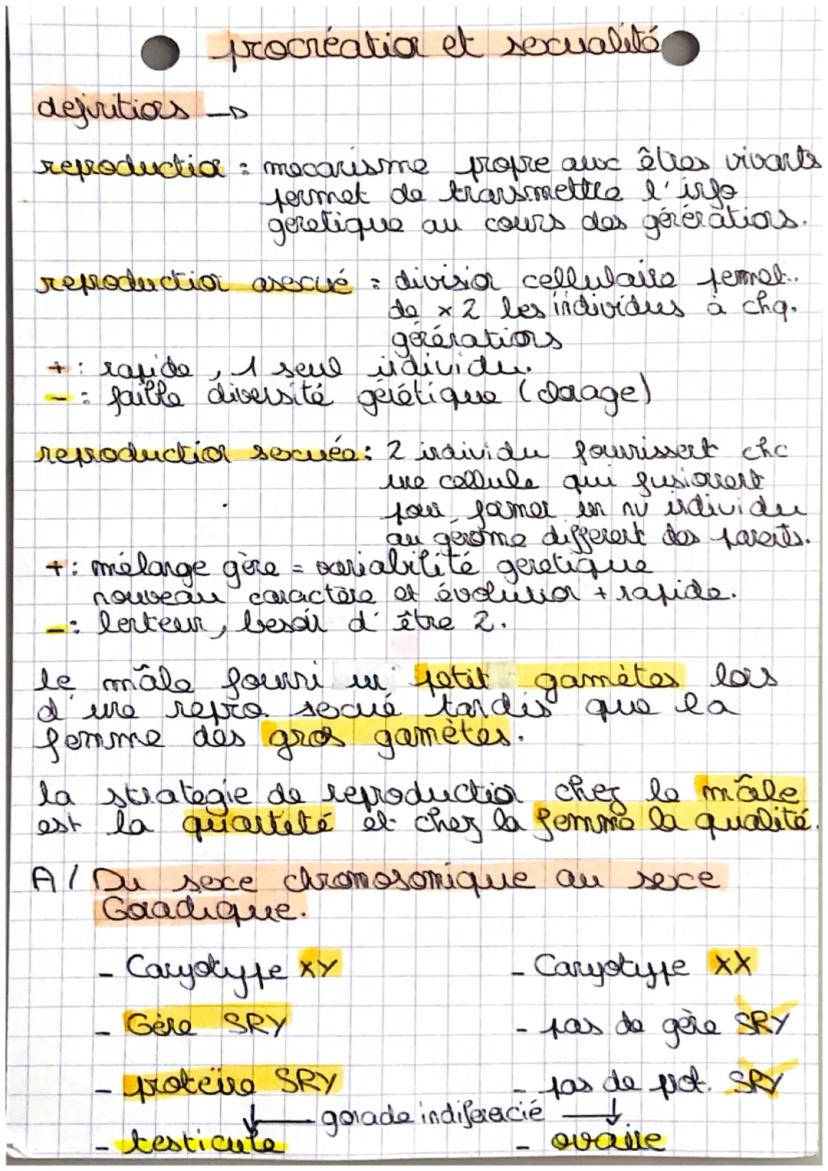 procréation et sexualité
definitions →
reproduction = mecanisme propre aux êtres vivants
permet de transmettre l'info
genetique au cours des générations.
reproduction asexué = division cellulaire permet.
de x2 les individus à chq.
générations
+ : rapide, 1 seul individu.
- : faible diversité génétique (clonage)
reproduction sexuée : 2 individu fournissent chc
une cellule qui fusionnent
pour former un nv individu
au génome different des parents.
+ : mélange gène = variabilité genetique
nouveau caractère et évolution + rapide.
- : lenteur, besoin d'être 2.
le mâle fourni un petit gamètes lors
d'une repro. sexué tandis que la
femme des gros gamètes.
la strategie de reproduction chez le mâle
est la quantité et chez la femme la qualité.
A/ Du sexe chromosomique au sexe
Gonadique.
- Caryotype XY - Caryotype XX
- Gène SRY - pas de gène SRY
- proteine SRY - pas de prot. SRY
gonade indiferencié
- testicule - ovaire